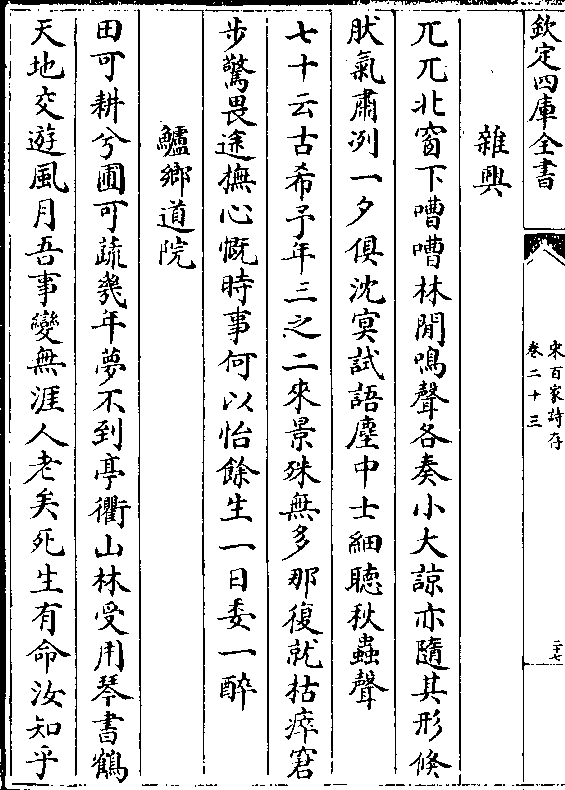 欽定四庫全書
宋百家詩存
卷二十三
二十七
雜興
兀兀北窗下嘈嘈林間鳴聲各奏小大諒亦隨其形倏
肰氣肅冽一夕俱沈㝠試語塵中士細聽秋蟲聲
七十云古希予年三之二來景殊無多那復就枯瘁窘
步驚畏途撫心慨時事何以怡餘生一日委一醉
鱸鄉道院
田可耕兮圃可蔬幾年夢不到亭衢山林受用琴書鶴
天地交遊風月吾事變無涯人老矣死生有命汝知乎